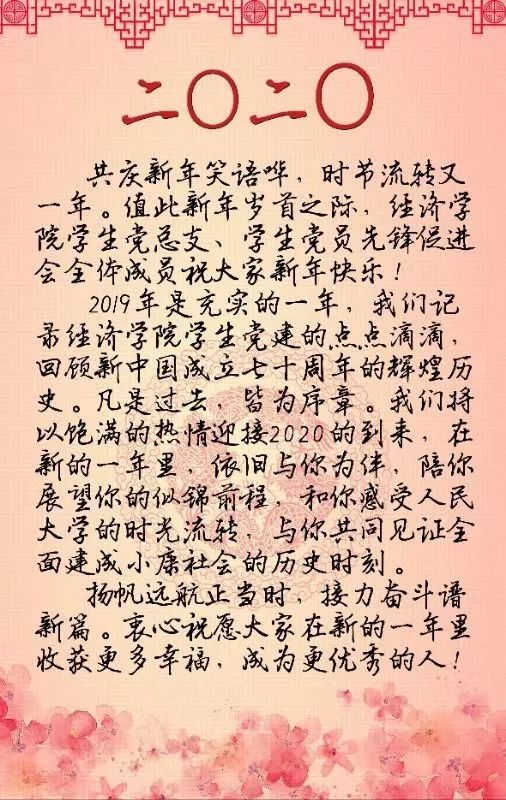 二〇二〇
共庆新年笑语哗，时节流转又
一年。值此新年岁首之际，经济学
院学生党总支、学生党员先锋促进
会全体成员祝大家新年快乐！
2019年是充实的一年，我们记
录经济学院学生党建的点点滴滴，
回顾新中国成立七十周年的辉煌历
史。凡是过去，皆为序章。我们将
以饱满的热情迎接2020的到来，在
新的一年里，依旧与你为伴，陪你
展望你的似锦前程，和你感受人民
大学的时光流转，与你共同见证全
面建成小康社会的历史时刻。
扬帆远航正当时，接力奋斗谱
新篇。衷心祝愿大家在新的一年里
收获更多幸福，成为更优秀的人！